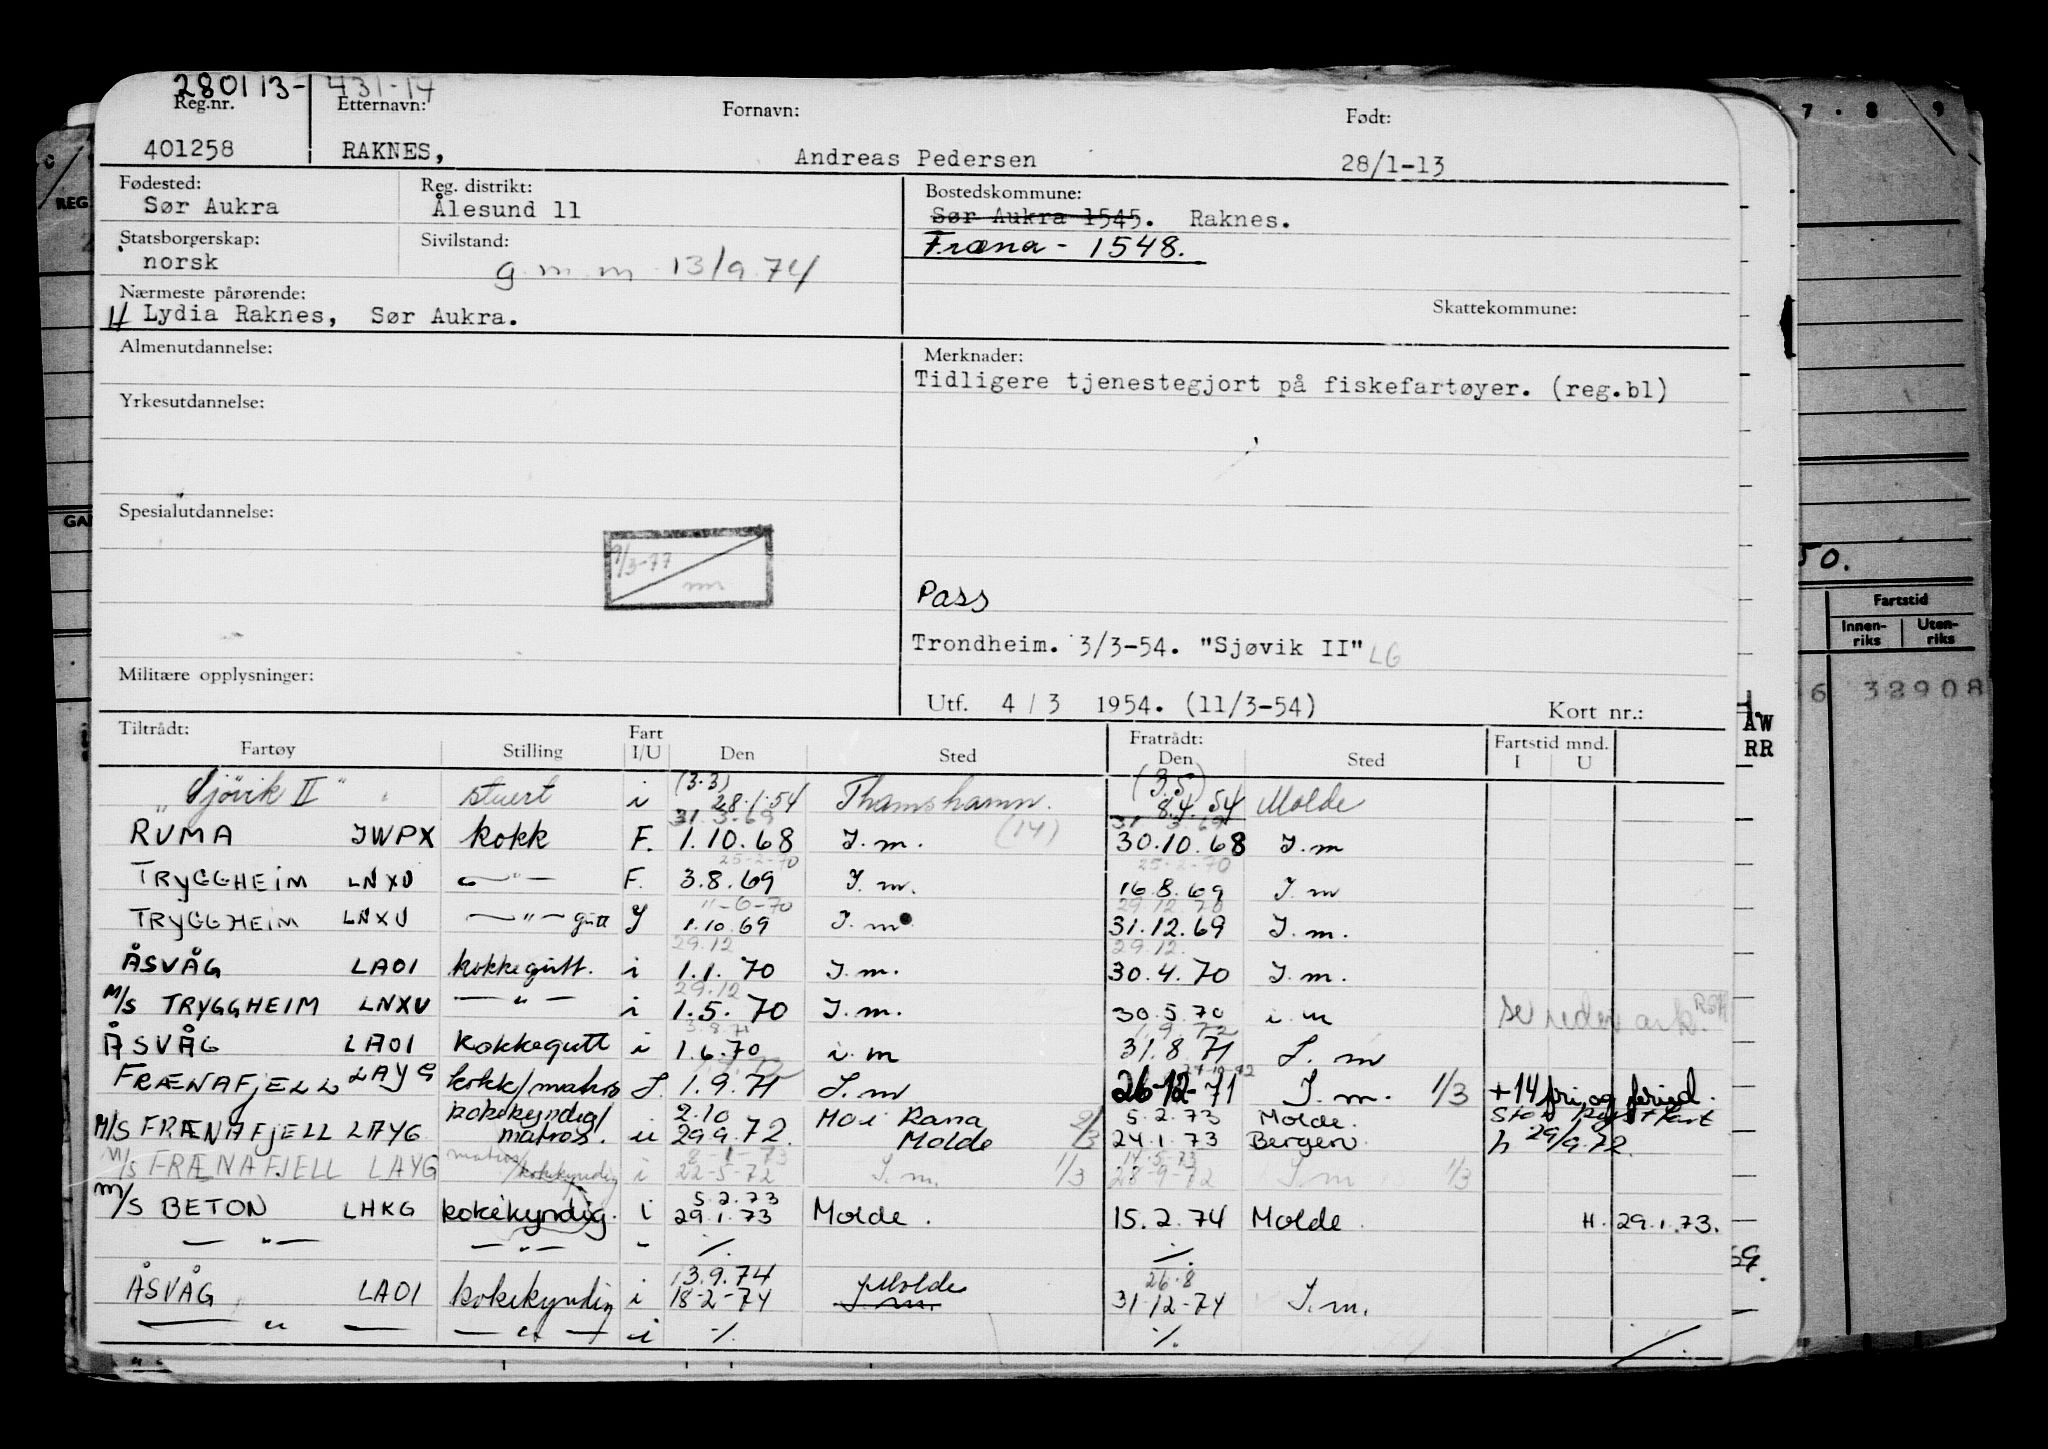 280113- 431-14
Reg.nr. Etternavn: Fornavn: Født:
401258 RAKNES, Andreas Pedersen 28/1-13
Fødested: Reg. distrikt: Bostedskommune:
Sør Aukra Ålesund 11 Sør Aukra 1545. Raknes.
Statsborgerskap: Sivilstand: Fræna - 1548.
norsk g.m.m 13/9.74
Nærmeste pårørende: Skattekommune:
H Lydia Raknes, Sør Aukra.
Almenutdannelse: Merknader:
Tidligere tjenestegjort på fiskefartøyer. (reg.bl)
Yrkesutdannelse:
Spesialutdannelse:
9/3-77
Pass
Trondheim. 3/3-54. "Sjøvik II" LG
Militære opplysninger:
Utf. 4 / 3 1954. (11/3-54) Kort nr.:
Tiltrådt: Fart Fratrådt: Fartstid mnd.
Fartøy Stilling I/U Den Sted Den Sted I U
(3.3) (3.5)
"Sjövik II" stuert i 28.1.54 Thamshamn. 8.4.54 Molde
31.3.69 31 3.69
RUMA JWPX kokk F. 1.10.68 J.m. (14) 30.10.68 J.m
25-2-70 25-2-70
TRYGGHEIM LNXU —"— F. 3.8.69 J.m. 16.8.69 J.m
11-6-70 29 12 70
TRYGGHEIM LNXU —"— gutt J 1.10.69 J.m. 31.12.69 J.m.
29.12 29.12.
ÅSVÅG LAOI kokkegutt. i 1.1.70 J.m. 30.4.70 J.m.
29.12
M/S TRYGGHEIM LNXU —"— i 1.5.70 J.m. 30.5.70 i.m se reder ark.
3.8.71 1.9.72
ÅSVÅG LAOI kokkegutt i 1.6.70 i.m 31.8.71 J.m
FRÆNAFJELL LAYG kokk/matros J. 1.9.71 J.m 26-12-71 J.m. 1/3 +14 fri og feried.
kokekyndig/ 2.10 Mo i Rana 2/3 5.2.73 Molde.
M/S FRÆNAFJELL LAYG matros. u 29.9.72. Molde 24.1.73 Bergen. h 29/9.72.
8-1-73 14.5.73
M/S FRÆNAFJELL LAYG matros/kokekyndig i 22-5-72 J.m. 1/3 28-9-72 J.m 1/3
5.2.73
M/S BETON LHKG kokekyndig. i 29.1.73 Molde. 15.2.74 Molde. H. 29.1.73.
—"— —"— - ./. ./.
13.9.74 Molde 26.8
ÅSVÅG LAOI kokekyndig i 18-2-74 J.m. 31-12-74 J.m.
—"— — —"— i ./. ./.
7 . 8 9
REG
GA
50.
Fartstid
Innen-riks Uten-riks
6 32908
AW
RR
69.